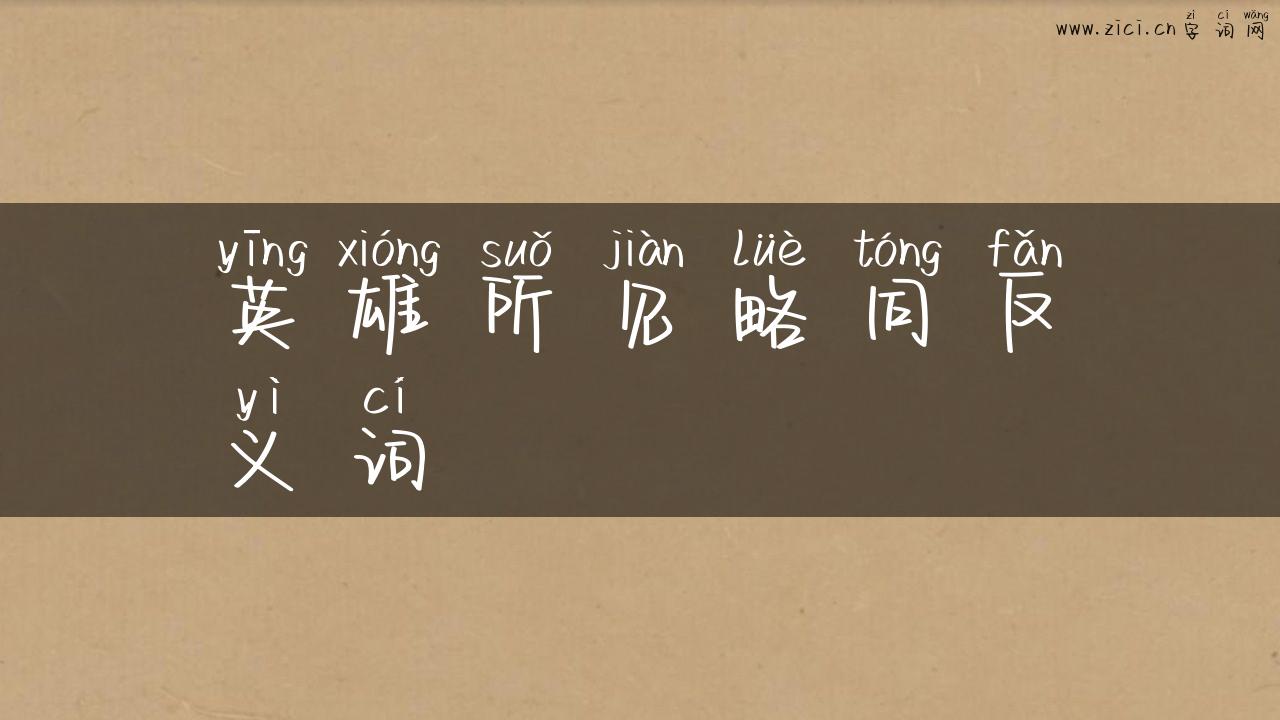 zì cí wǎng
www.zici.cn 字词网
yīng xióng suǒ jiàn lüè tóng fǎn
英雄所见略同反
yì cí
义词